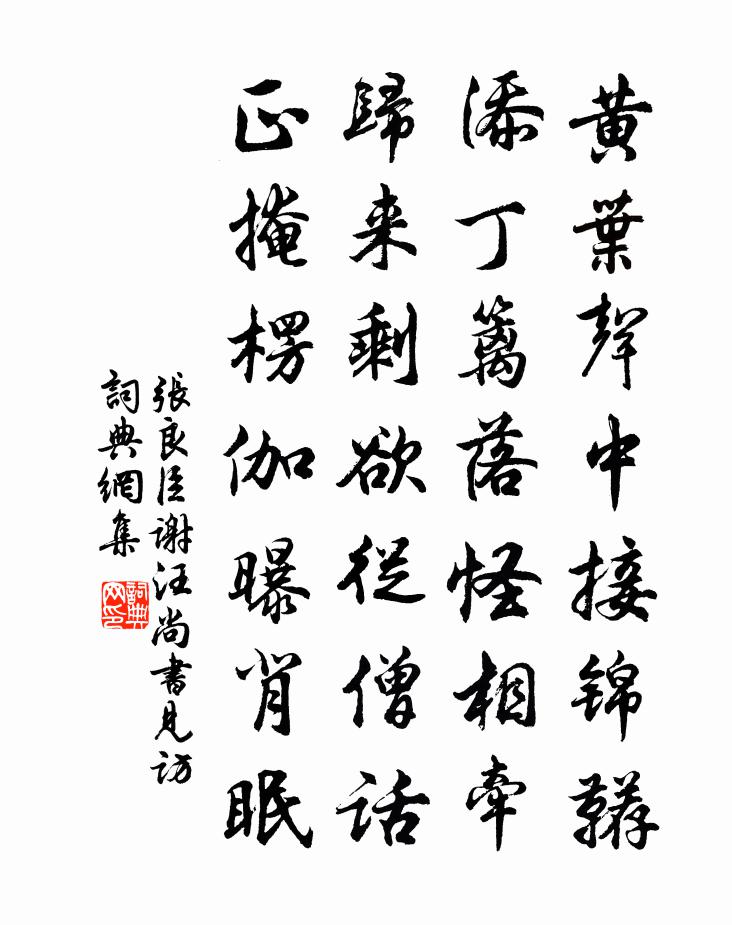 黄葉聲中接錦韉
添丁籬落怪相牽
歸来剩欲從僧話
正掩楞伽曝背眠
張良臣謝汪尚書見訪
詞典網集
詞典网印